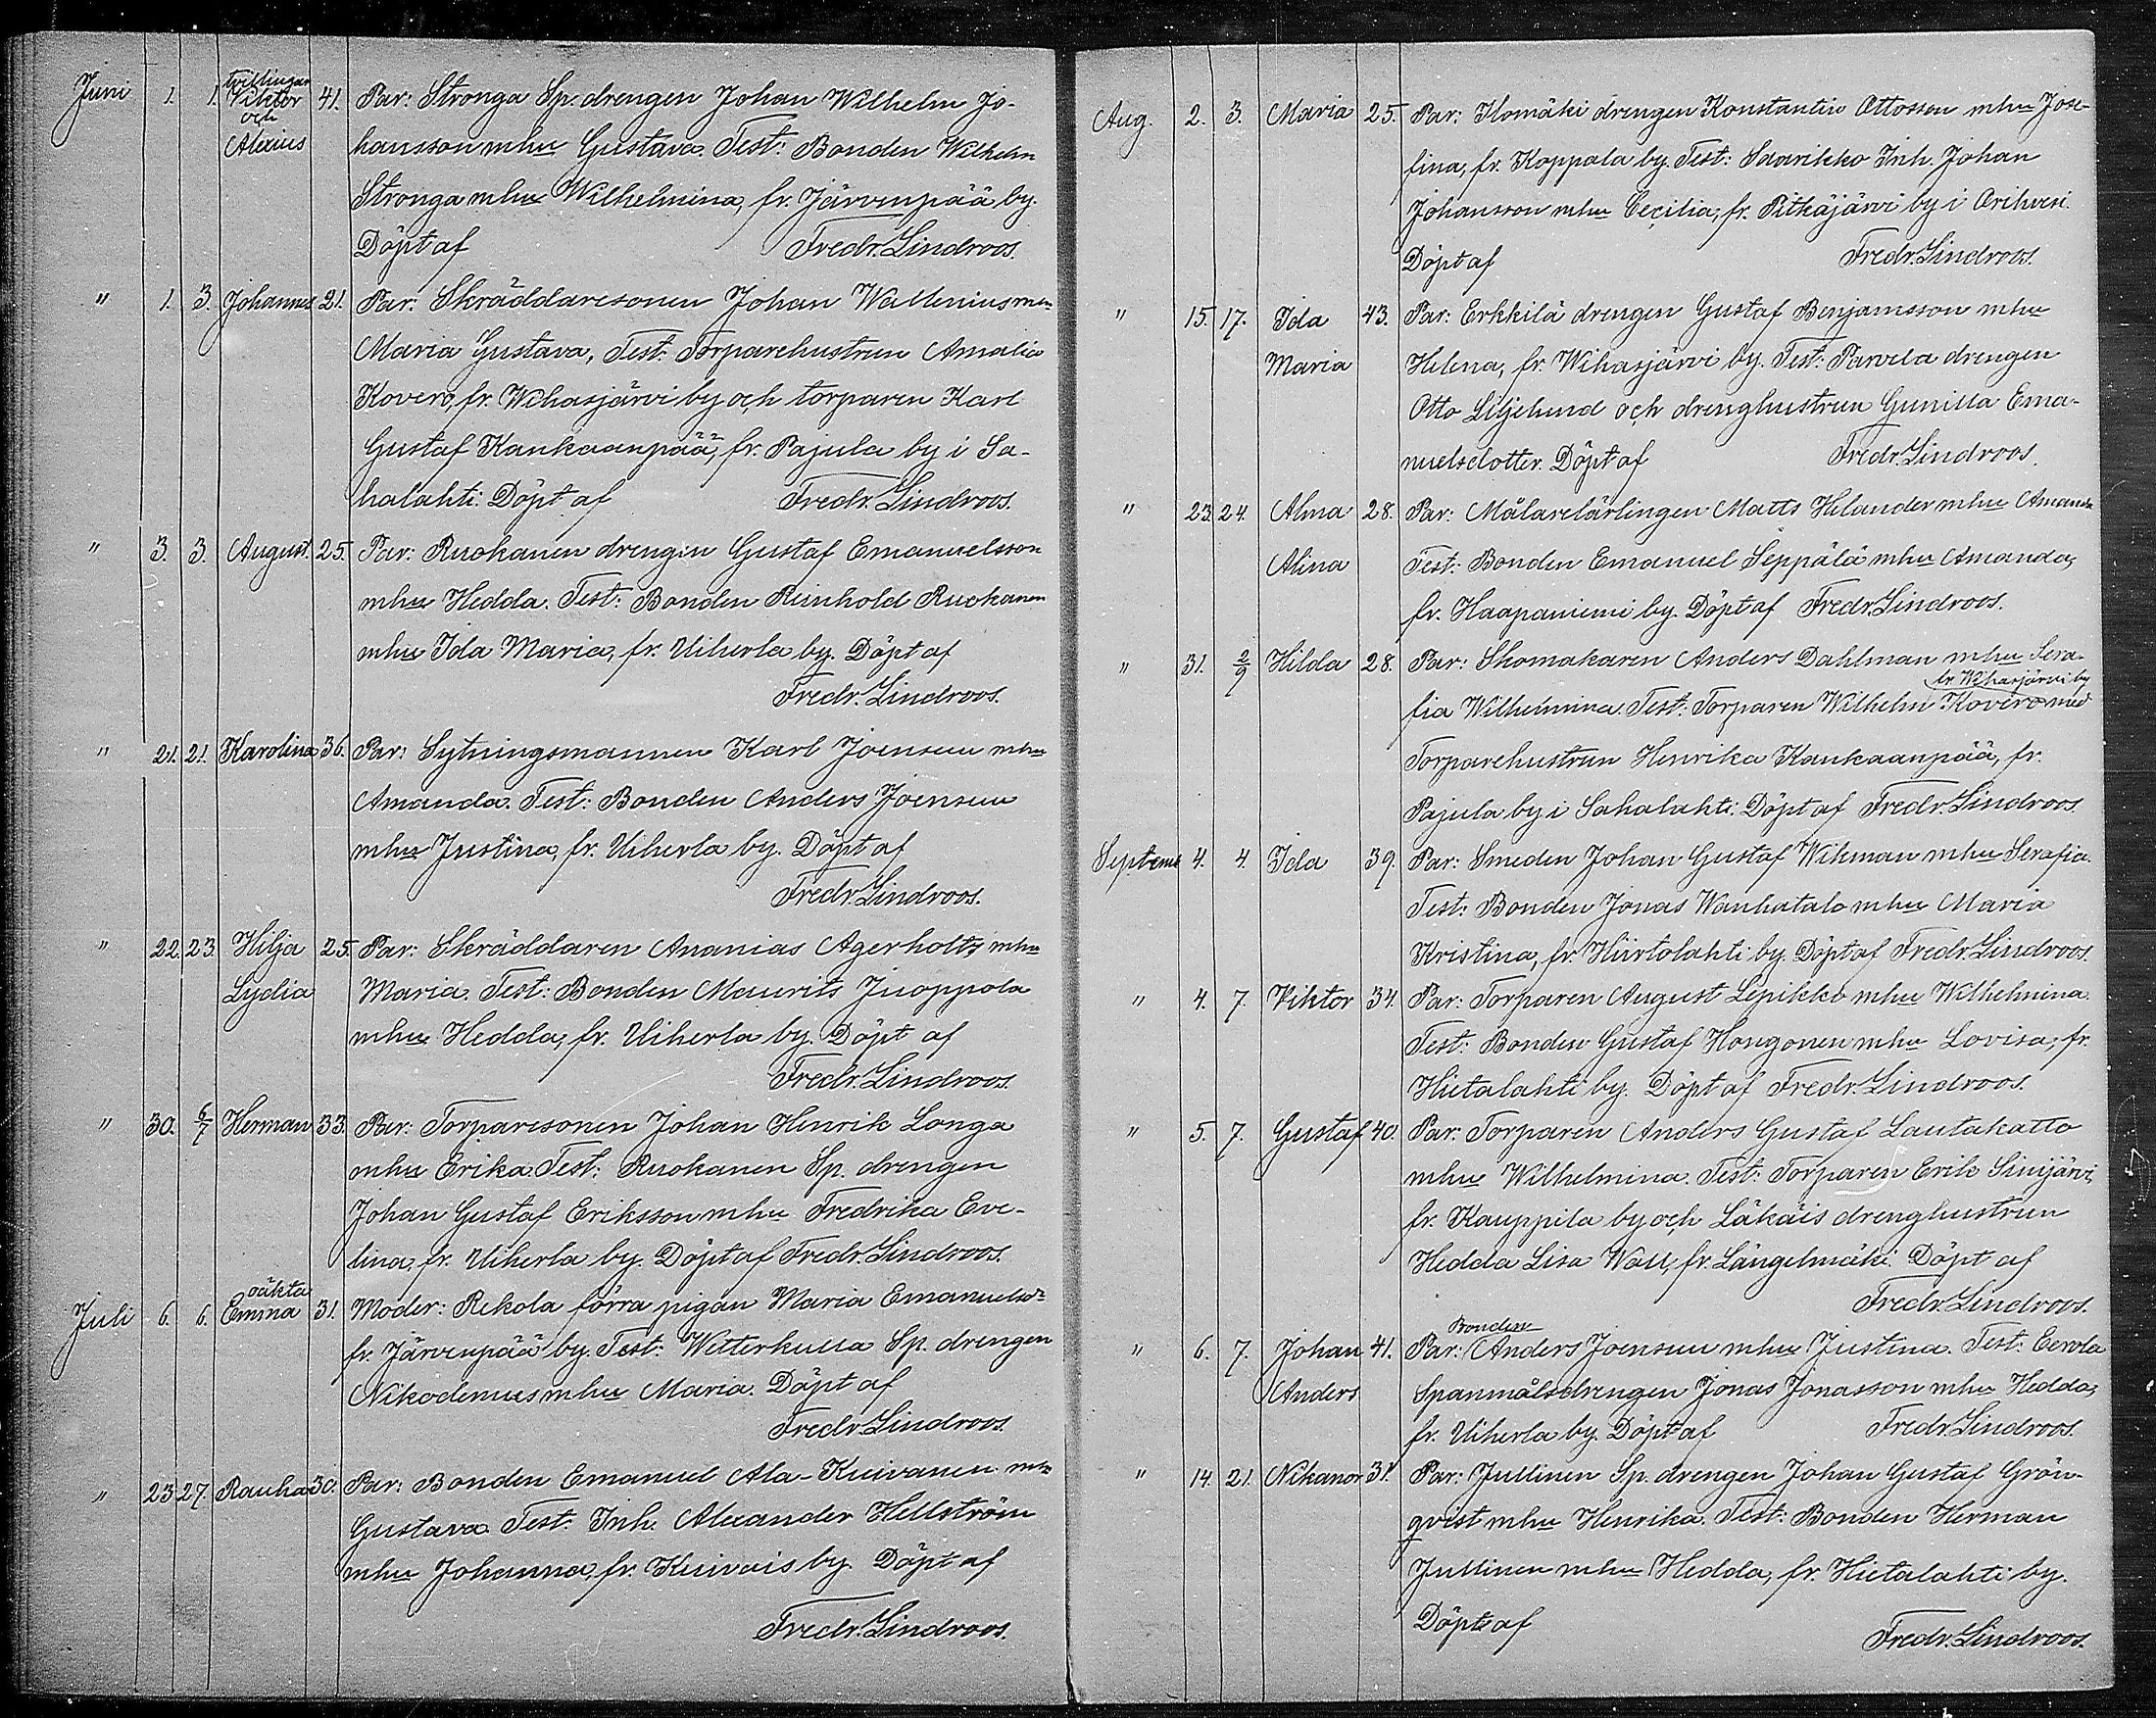 Juni 1. 1. tvillingar Viktor 41. Par: Stronga Sp. drengen Johan Wilhelm Jo-
och Alexius hansson mhu Gustava. Test: Bonden Wilhelm
Stronga mhu Wilhelmina, fr. Järvenpää by.
Döpt af Fredr. Lindroos.
" 1. 3. Johannes 21. Par: Skräddaresonen Johan Wallenius mhu
Maria Gustava, Test: Torparehustrun Amalia
Kovero, fr. Wihasjärvi by och torparen Karl
Gustaf Kankaanpää, fr. Pajula by i Sa-
halahti. Döpt af Fredr. Lindroos.
" 3. 3. August. 25. Par: Ruokanen drengen Gustaf Emanuelsson
mhu Hedda. Test: Bonden Reinhold Ruokanen
mhu Ida Maria, fr. Uiherla by. Döpt af
Fredr. Lindroos.
" 21. 21. Karolina 36. Par: Sytningsmannen Karl Joensuu mhu
Amanda. Test: Bonden Anders Joensuu
mhu Justina, fr. Uiherla by. Döpt af
Fredr. Lindroos.
" 22. 23. Hilja 25. Par: Skräddaren Ananias Agerholtz mhu
Lydia Maria. Test: Bonden Maurits Juoppola
mhu Hedda, fr. Uiherla by. Döpt af
Fredr. Lindroos.
" 30. 6/7 Herman 33. Par: Torparesonen Johan Henrik Longa
mhu Erika. Test: Ruokanen Sp. drengen
Johan Gustaf Eriksson mhu Fredrika Eve-
lina, fr. Uiherla by. Döpt af Fredr. Lindroos.
Juli 6. 6. oäkta Emma 31. Moder: Rekola förra pigan Maria Emanuelsdr
fr. Järvenpää by. Test: Witterkulla Sp. drengen
Nikodemus mhu Maria. Döpt af
Fredr. Lindroos.
" 23 27. Rauha 30. Par: Bonden Emanuel Ala-Kuivanen mhu
Gustava. Test: Inh. Alexander Hellström
mhu Johanna, fr. Kuivais by. Döpt af
Fredr. Lindroos.
Aug. 2. 3. Maria 25. Par: Ilomäki drengen Konstantin Ottosson mhu Jose-
fina, fr. Koppala by. Test: Saarikko Inh. Johan
Johansson mhu Cecilia, fr. Pitkäjärvi by i Orihvesi.
Döpt af Fredr. Lindroos.
" 15. 17. Ida 43. Par: Erkkilä drengen Gustaf Benjamsson mhu
Maria Helena, fr. Wihasjärvi by. Test: Parvela drengen
Otto Liljelund och drenghustrun Gunilla Ema-
nuelsdotter. Döpt af Fredr. Lindroos.
" 23. 24. Alma 28. Par: Målarelärlingen Matts Helander mhu Amanda
Alina Test: Bonden Emanuel Seppälä mhu Amanda,
fr. Haapaniemi by. Döpt af Fredr. Lindroos.
" 31. 2/9 Hilda 28. Par: Skomakaren Anders Dahlman mhu Sera-
fr. Wihasjärvi by
fia Wilhelmina. Test: Torparen Wilhelm Kovero med
Torparehustrun Henrika Kankaanpää, fr.
Pajula by i Sahalahti. Döpt af Fredr. Lindroos.
Septemb 4. 4. Ida 39. Par: Smeden Johan Gustaf Wikman mhu Serafia.
Test: Bonden Jonas Wanhatalo mhu Maria
Kristina, fr Hiirtolahti by. Döpt af Fredr. Lindroos.
" 4. 7. Viktor 34. Par: Torparen August Lepikko mhu Wilhelmina.
Test: Bonden Gustaf Hongonen mhu Lovisa, fr.
Hietalahti by. Döpt af Fredr. Lindroos.
" 5. 7. Gustaf 40. Par: Torparen Anders Gustaf Lautakatto
mhu Wilhelmina. Test: Torparen Erik Sinijärvi,
fr. Kauppila by och Läkäis drenghustrun
Hedda Lisa Wall, fr. Längelmäki. Döpt af
Fredr. Lindroos.
Bonden
" 6. 7. Johan 41. Par: Anders Joensuu mhu Justina. Test: Eerola
Anders Spanmålsdrengen Jonas Jonasson mhu Hedda,
fr. Uiherla by. Döpt af Fredr. Lindroos.
" 14. 21. Nikanor 31. Par: Jullinen Sp. drengen Johan Gustaf Grön-
qvist mhu Henrika. Test: Bonden Herman
Jullinen mhu Hedda, fr. Hietalahti by.
Döpt af Fredr. Lindroos.